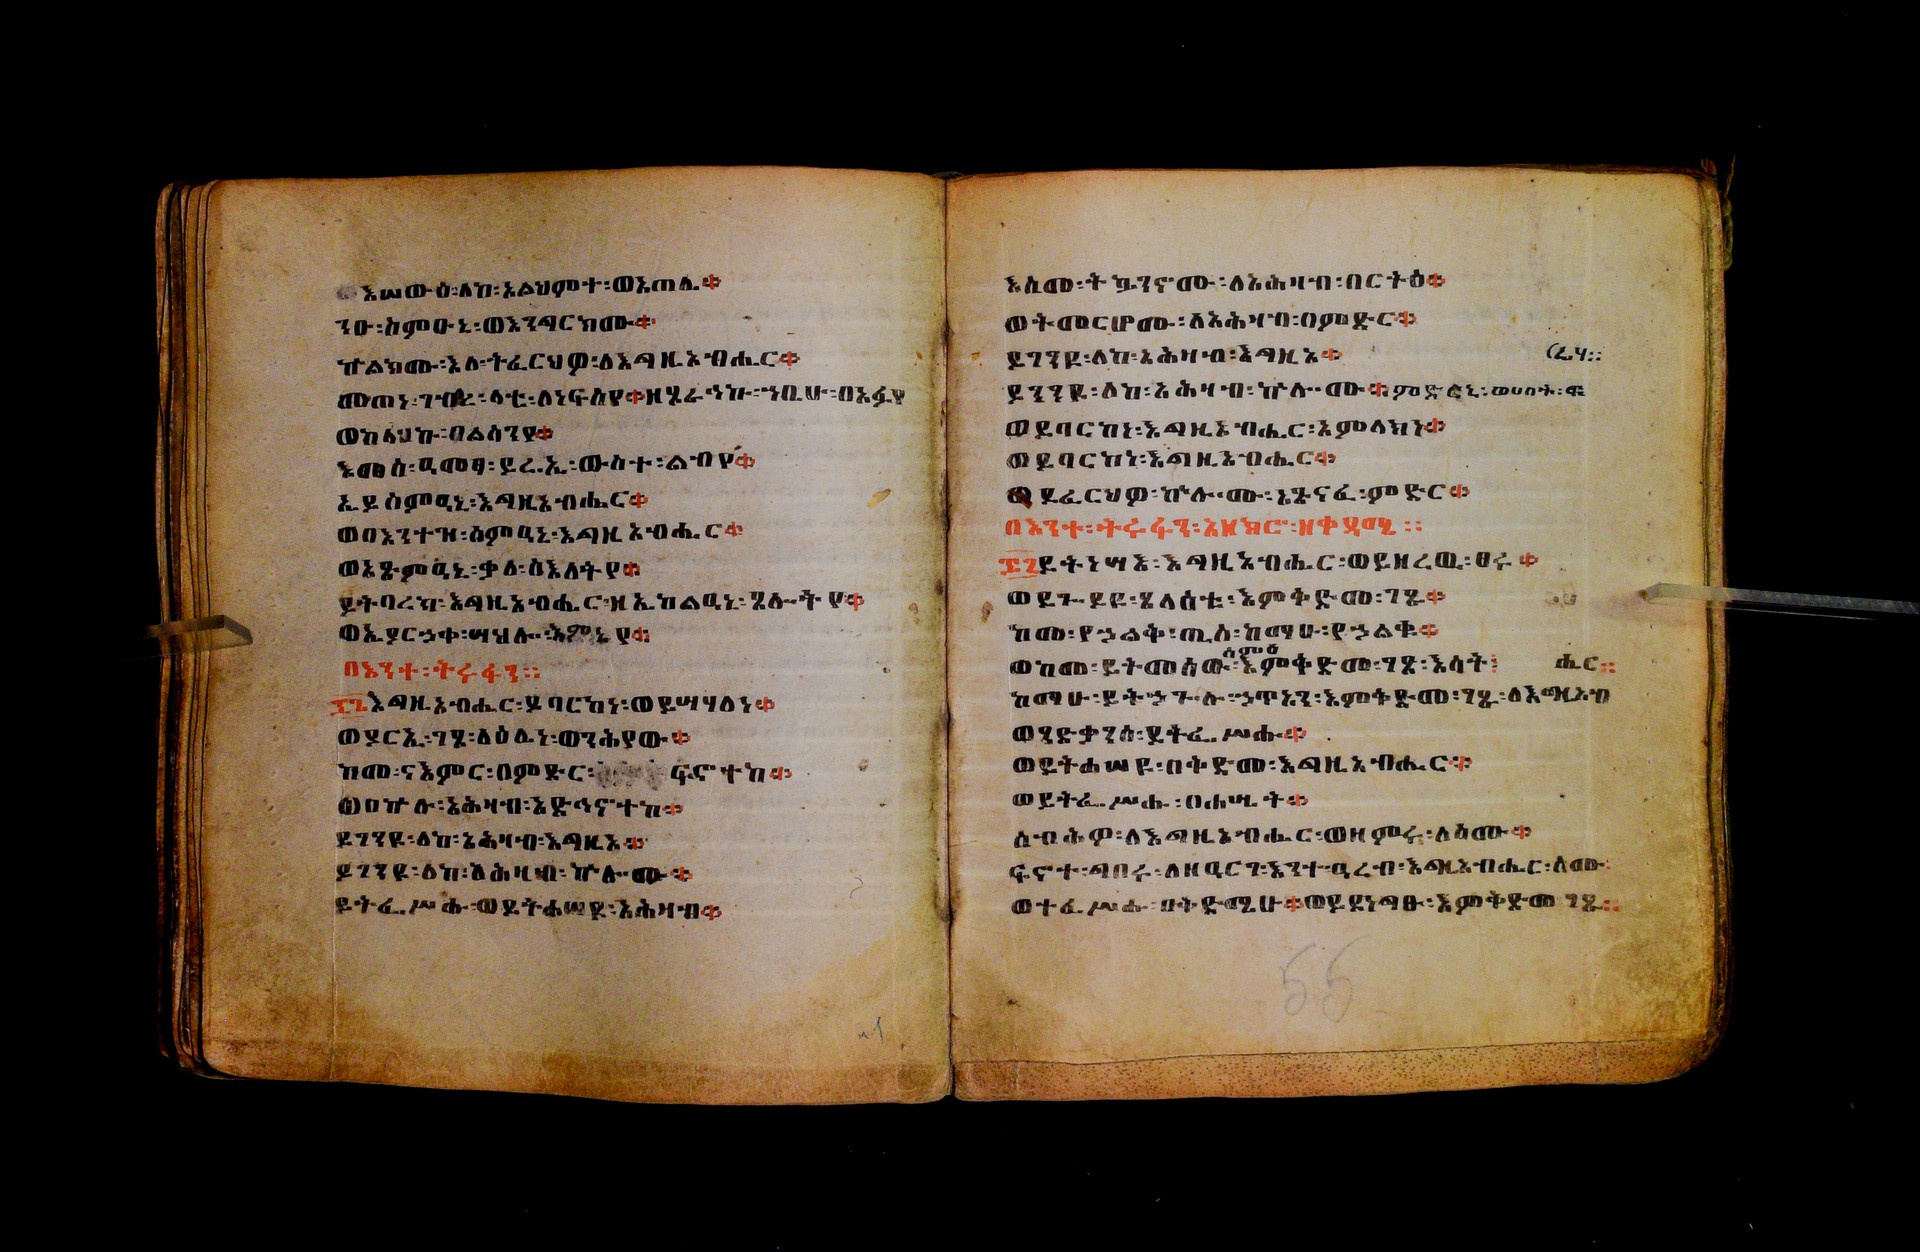 እሠውዕ፡ለከ፡አልህምተ፡ወአጠሊ።
ንዑ፡ስምዑኒ፡ወእንግርክሙ።
ኵልክሙ፡እለ፡ትፈርህዎ፡ለእግዚአብሔር።
መጠነ፡ገብረ፡ላቲ፡ለነፍስየ።ዘጸራኅኩ፡ኀቤሁ፡በአፉየ
ወከላህኩ፡በልሳንየ።
እመሰ፡ዓመፃ፡ይሬኢ፡ውስተ፡ልብየ።
ኢይስምዓኒ፡እግዚአብሔር።
ወበእንተዝ፡ስምዓኒ፡እግዚአብሔር።
ወአጽምዓኒ፡ቃለ፡ስእለትየ።
ይትባረክ፡እግዚአብሔር፡ዘኢከልአኒ፡ጸሎትየ።
ወኢያርኃቀ፡ሣህሎ፡እምኔየ።
በእንተ፡ትሩፋን፡፡
፷፮እግዚአብሔር፡ይባርከነ፡ወይሣሃለነ።
ወያርኢ፡ገጾ፡ለዕሌነ፡ወንሕየው።
ከመ፡ናእምር፡በምድር፡ፍኖተከ።
ወበኵሉ፡አሕዛብ፡አድኅኖተከ።
ይገንዩ፡ለከ፡አሕዛብ፡እግዚኦ።
ይገንዩ፡ለከ፡አሕዛብ፡ኵሎሙ።
ይትፌሥሑ፡ወይትሐሠዩ፡አሕዛብ።
እስመ፡ትኴንኖሙ፡ለአሕዛብ፡በርትዕ።
ወትመርሆሙ፡ለአሕዛብ፡በምድር።
ይገንዩ፡ለከ፡አሕዛብ፡እግዚኦ።
ይገንዩ፡ለከ፡አሕዛብ፡ኵሎሙ።ምድርኒ፡ወሀበት፡ፍ
(ሬሃ፡፡
ወይባርከነ፡እግዚአብሔር፡አምላክነ።
ወይባርከነ፡እግዚአብሔር።
ወይፈርህዎ፡ኵሎሙ፡አጽናፈ፡ምድር።
በእንተ፡ትሩፋን፡
፷፯ይትነሣእ፡እግዚአብሔር፡ወይዘረዉ፡ፀሩ።
ወይጐይዩ፡ጸላእቱ፡እምቅድመ፡ገጹ።
ከመ፡የኃልቅ፡ጢስ፡ከማሁ፡የኃልቁ።
ወከመ፡ይትመሰው፡ሰምዕ፡እምቅድመ፡ገጸ፡እሳት፡
ከማሁ፡ይትኃጐሉ፡ኃጥአን፡እምቅድመ፡ገጹ፡ለእግዚአብ
ሔር፡፡
ወጻድቃንሰ፡ይትፌሥሑ።
ወይትሐሠዩ፡በቅድመ፡እግዚአብሔር።
ወይትፌሥሑ፡በሐሤት።
ሰብሕዎ፡ለእግዚአብሔር፡ወዘምሩ፡ለስሙ።
ፍኖተ፡ግበሩ፡ለዘዓርገ፡እንተ፡ዓረብ፡እግዚአብሔር፡ስሙ፡
ወተፈሥሑ፡በቅድሜሁ።ወይደነግፁ፡እምቅድመ፡ገጹ፡፡
55